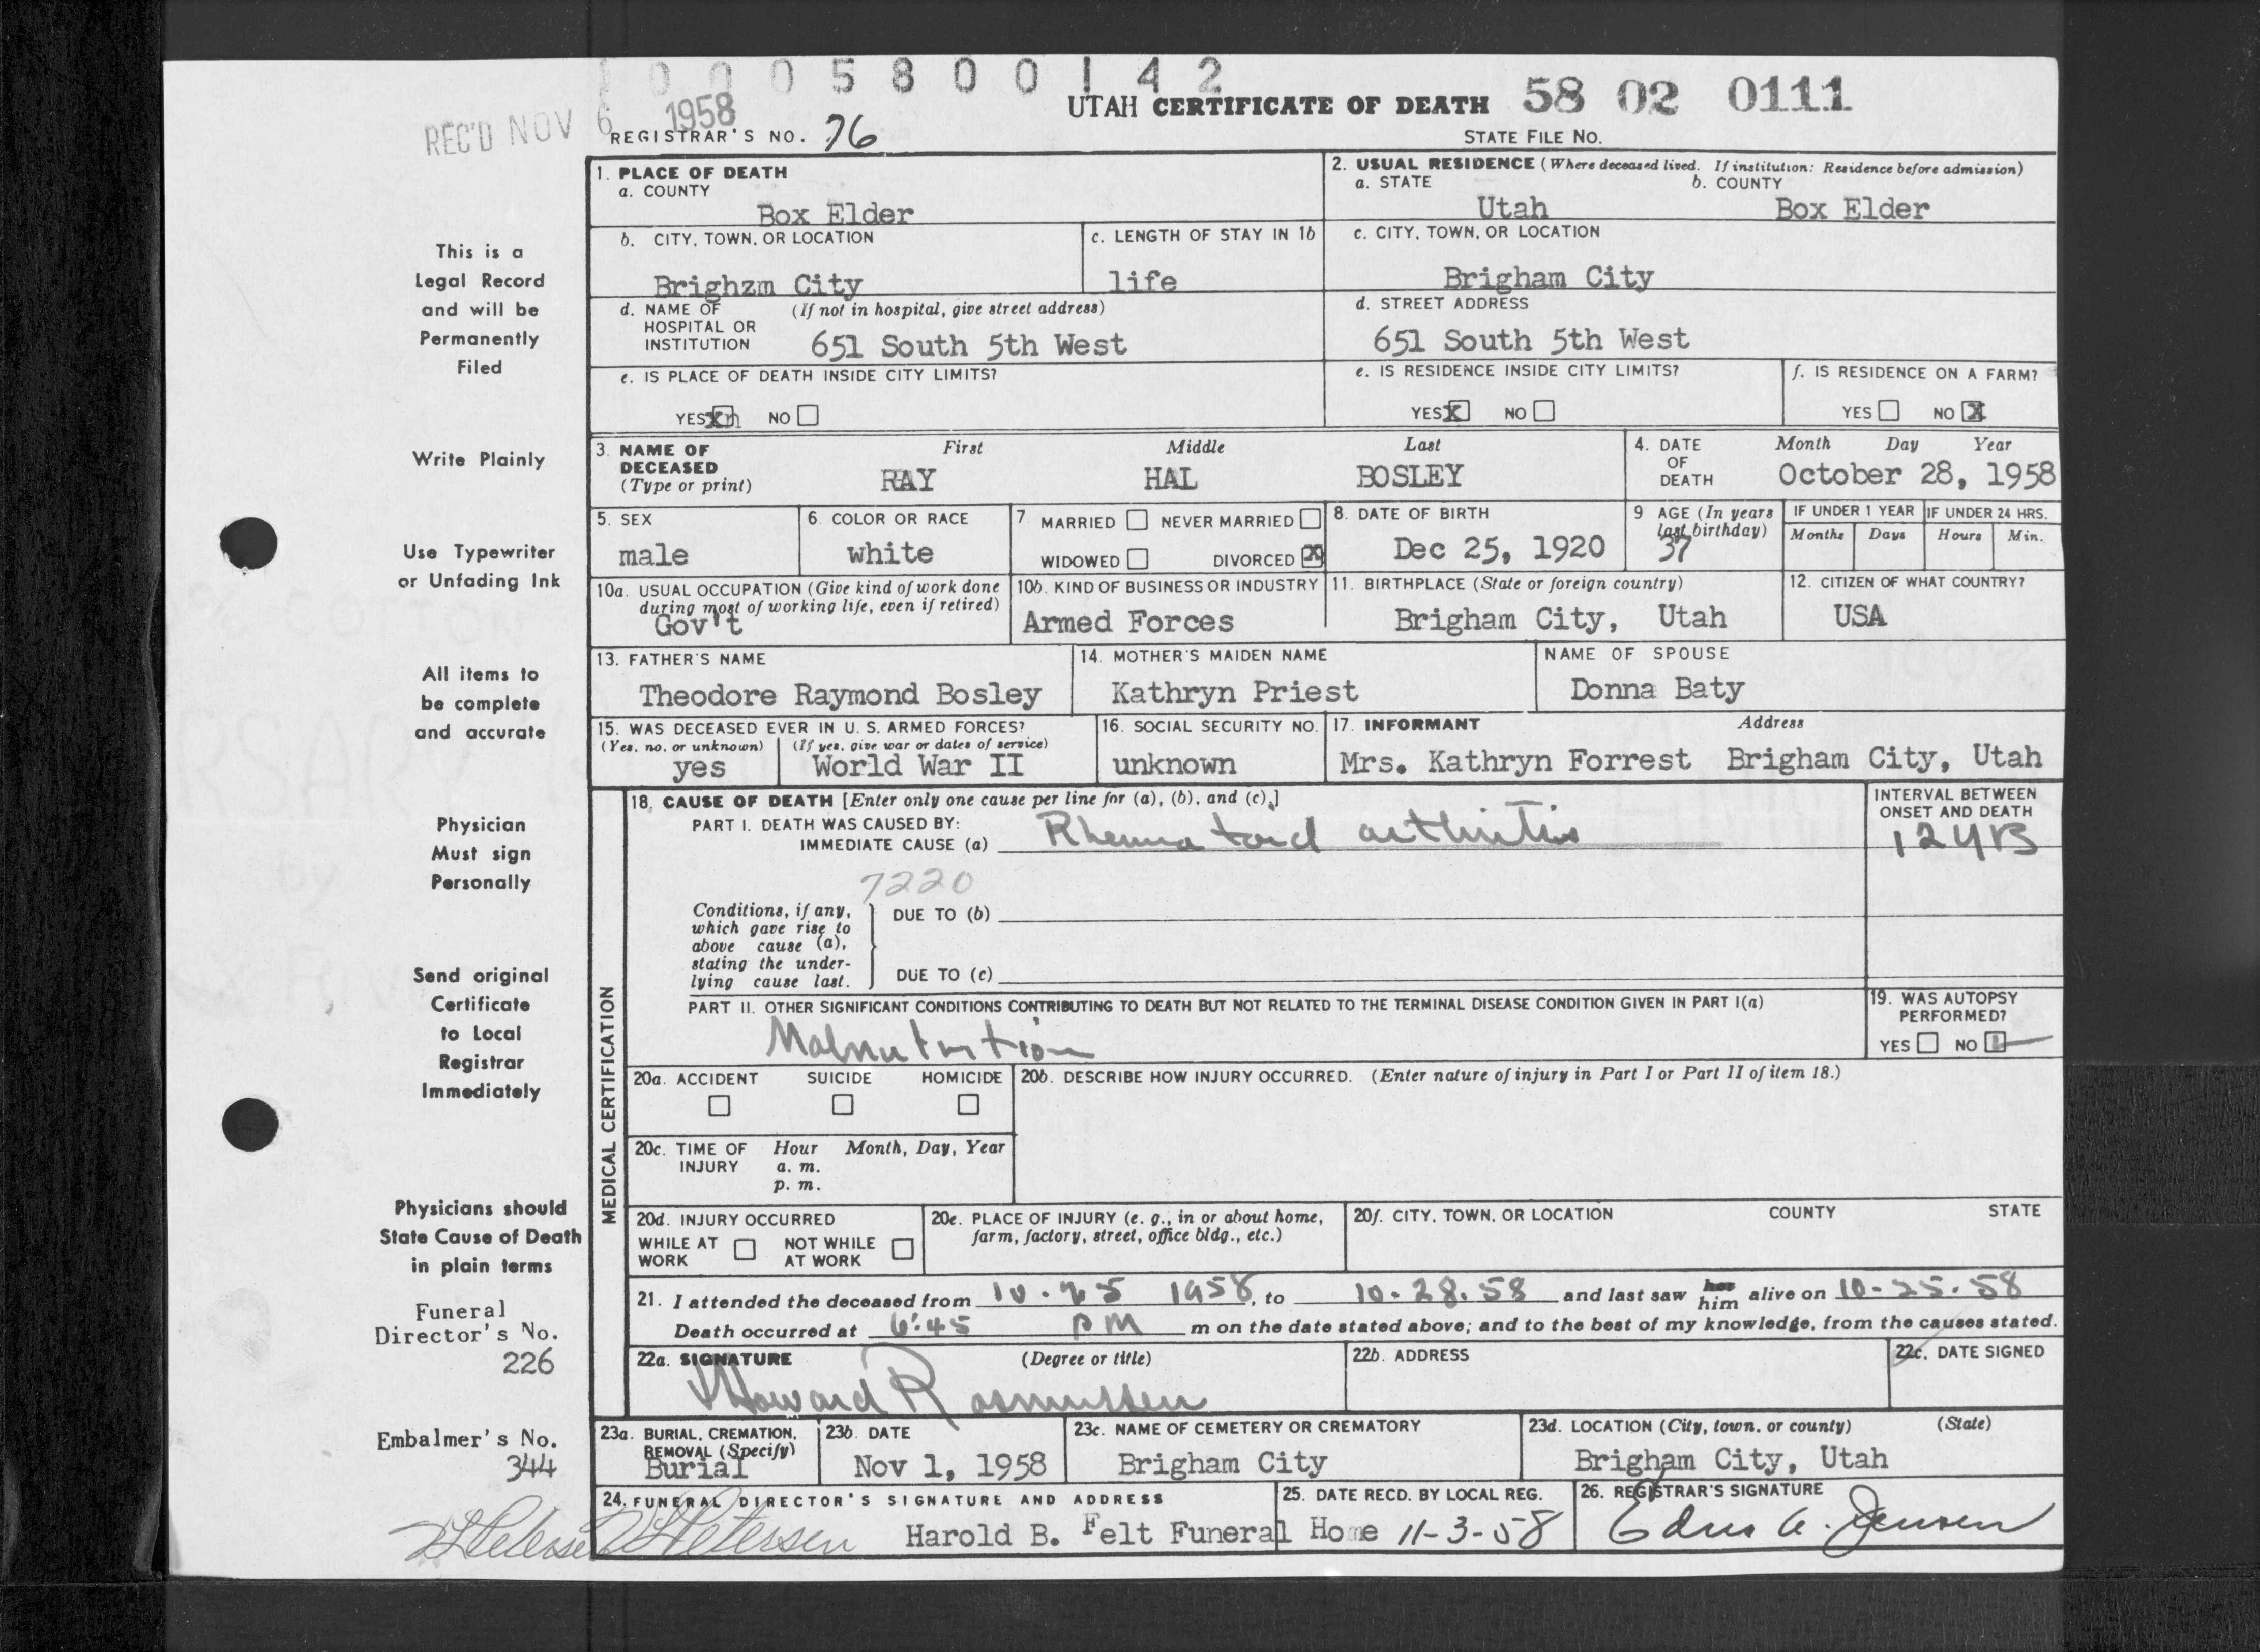 1 0 0 0 5 8 0 0 1 4 2
REC'D NOV 6 1958
UTAH CERTIFICATE OF DEATH 58 02 0111
REGISTRAR'S NO. 76
STATE FILE NO.
1. PLACE OF DEATH
a. COUNTY
Box Elder
2. USUAL RESIDENCE (Where deceased lived. If institution: Residence before admission)
a. STATE b. COUNTY
Utah Box Elder
b. CITY, TOWN, OR LOCATION
Brighzm City
c. LENGTH OF STAY IN 1b
life
c. CITY, TOWN, OR LOCATION
Brigham City
d. NAME OF HOSPITAL OR INSTITUTION (If not in hospital, give street address)
651 South 5th West
d. STREET ADDRESS
651 South 5th West
e. IS PLACE OF DEATH INSIDE CITY LIMITS?
YES X NO
e. IS RESIDENCE INSIDE CITY LIMITS?
YES X NO
f. IS RESIDENCE ON A FARM?
YES NO X
3. NAME OF DECEASED (Type or print)
First Middle Last
RAY HAL BOSLEY
4. DATE OF DEATH
Month Day Year
October 28, 1958
5. SEX
male
6. COLOR OR RACE
white
7. MARRIED NEVER MARRIED
WIDOWED DIVORCED X
8. DATE OF BIRTH
Dec 25, 1920
9 AGE (In years last birthday)
37
IF UNDER 1 YEAR IF UNDER 24 HRS.
Months Days Hours Min.
10a. USUAL OCCUPATION (Give kind of work done during most of working life, even if retired)
Gov't
10b. KIND OF BUSINESS OR INDUSTRY
Armed Forces
11. BIRTHPLACE (State or foreign country)
Brigham City, Utah
12. CITIZEN OF WHAT COUNTRY?
USA
13. FATHER'S NAME
Theodore Raymond Bosley
14. MOTHER'S MAIDEN NAME
Kathryn Priest
NAME OF SPOUSE
Donna Baty
15. WAS DECEASED EVER IN U. S. ARMED FORCES?
(Yes, no, or unknown) (If yes, give war or dates of service)
yes World War II
16. SOCIAL SECURITY NO.
unknown
17. INFORMANT Address
Mrs. Kathryn Forrest Brigham City, Utah
MEDICAL CERTIFICATION
18. CAUSE OF DEATH [Enter only one cause per line for (a), (b), and (c).]
PART I. DEATH WAS CAUSED BY:
IMMEDIATE CAUSE (a) Rheumatoid arthritis
INTERVAL BETWEEN ONSET AND DEATH
12 yrs
7220
Conditions, if any, which gave rise to above cause (a), stating the underlying cause last.
DUE TO (b)
DUE TO (c)
PART II. OTHER SIGNIFICANT CONDITIONS CONTRIBUTING TO DEATH BUT NOT RELATED TO THE TERMINAL DISEASE CONDITION GIVEN IN PART I(a)
Malnutrition
19. WAS AUTOPSY PERFORMED?
YES NO
20a. ACCIDENT SUICIDE HOMICIDE
20b. DESCRIBE HOW INJURY OCCURRED. (Enter nature of injury in Part I or Part II of item 18.)
20c. TIME OF INJURY Hour Month, Day, Year
a. m.
p. m.
20d. INJURY OCCURRED
WHILE AT WORK NOT WHILE AT WORK
20e. PLACE OF INJURY (e. g., in or about home, farm, factory, street, office bldg., etc.)
20f. CITY, TOWN, OR LOCATION COUNTY STATE
21. I attended the deceased from 10-25 1958, to 10-28-58 and last saw her him alive on 10-25-58
Death occurred at 6:45 PM m on the date stated above; and to the best of my knowledge, from the causes stated.
22a. SIGNATURE (Degree or title)
Howard Rasmussen
22b. ADDRESS
22c. DATE SIGNED
23a. BURIAL, CREMATION, REMOVAL (Specify)
Burial
23b. DATE
Nov 1, 1958
23c. NAME OF CEMETERY OR CREMATORY
Brigham City
23d. LOCATION (City, town, or county) (State)
Brigham City, Utah
24. FUNERAL DIRECTOR'S SIGNATURE AND ADDRESS
Petersen Harold B. Felt Funeral Home
25. DATE RECD. BY LOCAL REG.
11-3-58
26. REGISTRAR'S SIGNATURE
Jensen
This is a
Legal Record
and will be
Permanently
Filed
Write Plainly
Use Typewriter
or Unfading Ink
All items to
be complete
and accurate
Physician
Must sign
Personally
Send original
Certificate
to Local
Registrar
Immediately
Physicians should
State Cause of Death
in plain terms
Funeral
Director's No.
226
Embalmer's No.
344